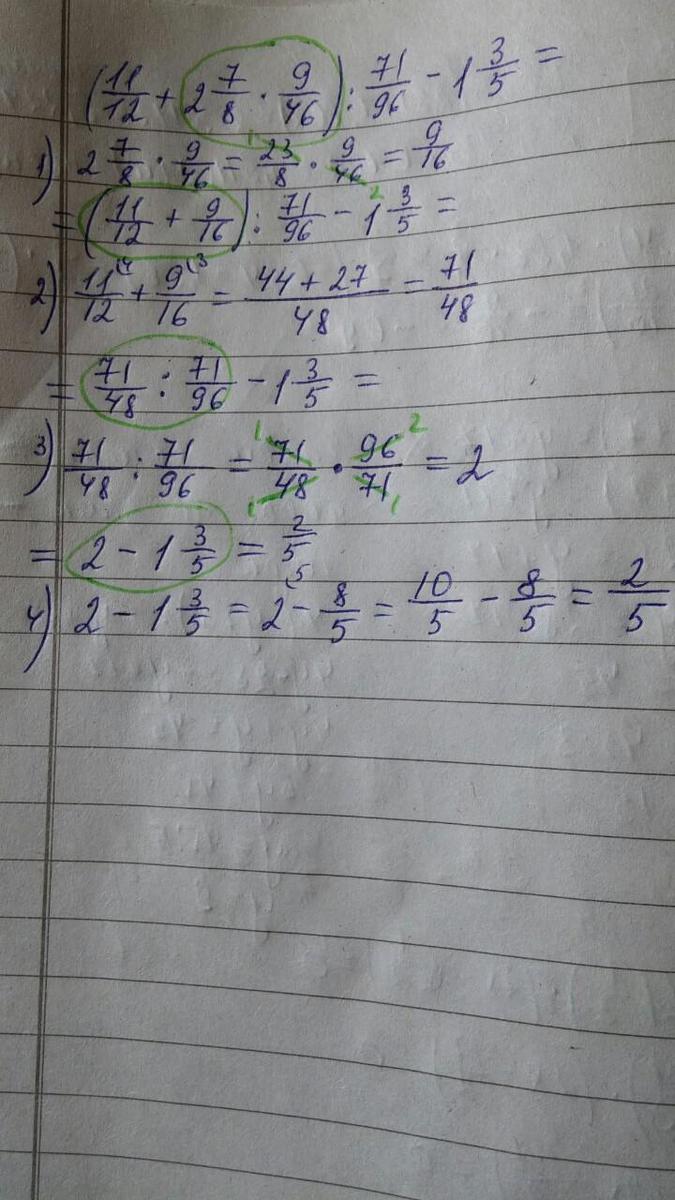 (11/12 + 2 7/8 · 9/46) : 71/96 - 1 3/5 =
1) 2 7/8 · 9/46 = 23/8 · 9/46 = 9/16
1 2
= (11/12 + 9/16) : 71/96 - 1 3/5 =
2) 11(4/12 + 9(3/16 = 44 + 27/48 = 71/48
= 71/48 : 71/96 - 1 3/5 =
3) 71/48 : 71/96 = 71/48 · 96/71 = 2
1 2 1 1
= 2 - 1 3/5 = 2/5
4) 2 - 1 3/5 = 2(5 - 8/5 = 10/5 - 8/5 = 2/5